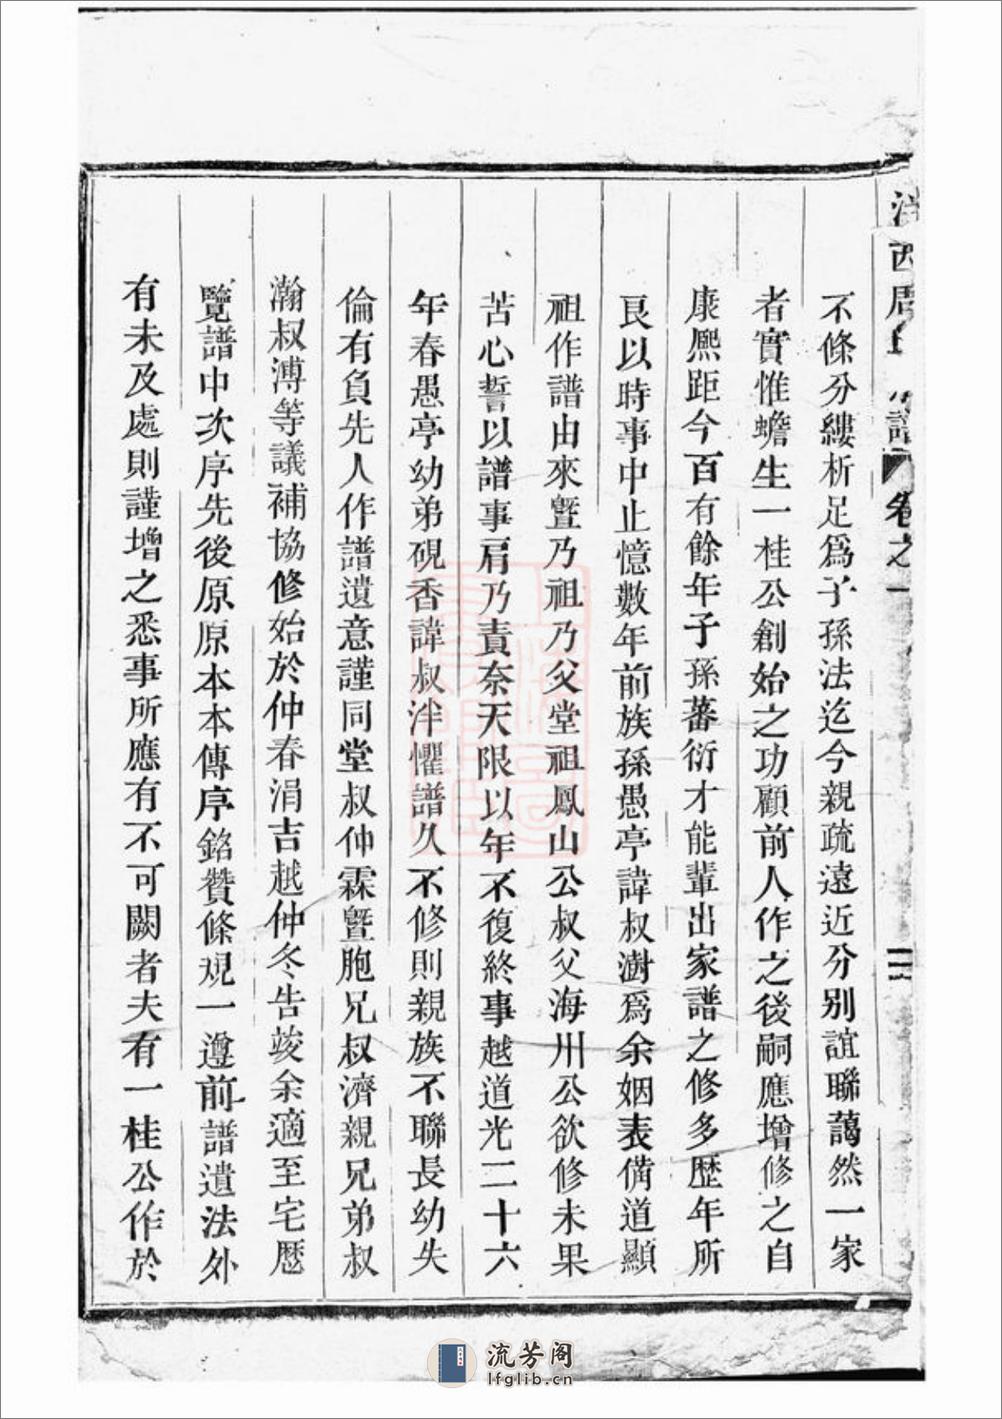 西周氏 譜 卷之一
二
不條分縷析足爲子孫法迄今親疏遠近分别誼聯藹然一家
者實惟蟾生一桂公創始之功顧前人作之後嗣應增修之自
康熙距今百有餘年子孫蕃衍才能輩出家譜之修多歴年所
良以時事中止憶數年前族孫愚亭諱叔澍爲余姻表備道顯
祖作譜由來曁乃祖乃父堂祖鳳山公叔父海州公欲修未果
苦心誓以譜事肩乃責奈天限以年不復終事越道光二十六
年春愚亭幼弟硯香諱叔泮懼譜久不修則親族不聯長幼失
倫有負先人作譜遺意謹同堂叔仲霖曁胞兄叔濟親兄弟叔
瀚叔溥等議補協修始於仲春涓吉越仲冬告竣余適至宅歷
覽譜中次序先後原原本本傳序銘贊條規一遵前譜遺法外
有未及處則謹增之悉事所應有不可闕者夫有一桂公作於
流芳阁
lfglib.cn